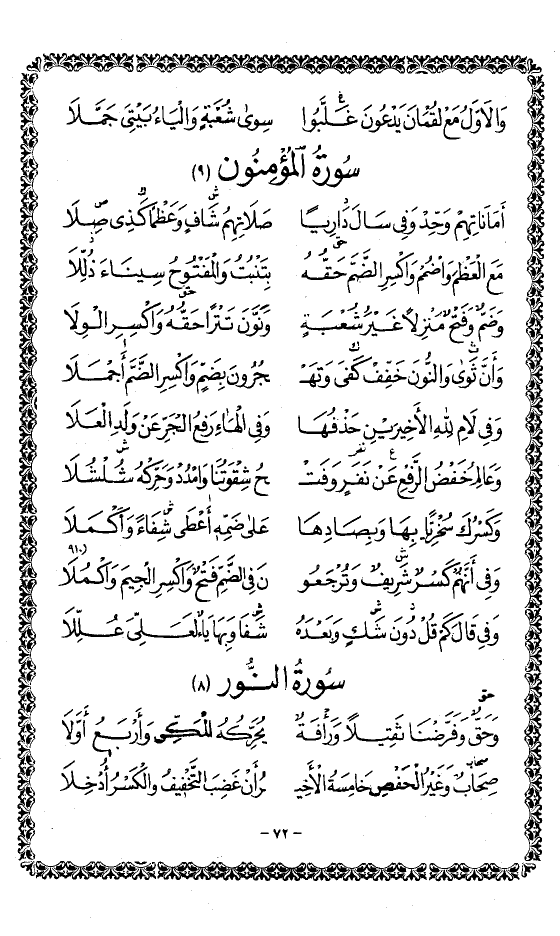 وَالَاوَّلُ مَعْ لُقْمَانَ يَدْعُونَ غَلَّبُوا سِوَى شُعْبَةٍ وَالْيَاءُ بَيْتِيَ جَمَّلَا
سُورَةُ الْمُؤْمِنُون (٩)
أَمَانَاتِهِمْ وَحِّدْ وَفِي سَالَ دَارِيًا صَلَاتِهِمُ شَافٍ وَعَظْمًا كَذِي صِلَا
مَعَ الْعَظْمِ وَاضْمُمْ وَاكْسِرِ الضَّمَّ حَقُّهُ بِتَنْبُتُ وَالْمَفْتُوحُ سِينَاءَ ذُلِّلَا
وَضَمٌّ وَفَتْحٌ مَنْزِلًا غَيْرُ شُعْبَةٍ وَنَوَّنَ تَتْرًا حَقُّهُ وَاكْسِرِ الْوِلَا
وَأَنَّ ثَوَى وَالنُّونَ خَفِّفْ كَفَى وَتَهْـ ـجُرُونَ بِضَمٍّ وَاكْسِرِ الضَّمَّ أَجْمَلَا
وَفِي لَامِ لِلهِ الْأَخِيرَيْنِ حَذْفُهَا وَفِي الْهَاءِ رَفْعُ الْجَرِّ عَنْ وَلَدِ الْعَلَا
وَعَالِمُ خَفْضُ الرَّفْعِ عَنْ نَفَرٍ وَفَتْـ ـحُ شِقْوَتُنَا وَامْدُدْ وَحَرِّكْهُ شُلْشُلَا
وَكَسْرُكَ سُخْرِيًّا بِهَا وَبِصَادِهَا عَلَى ضَمِّهِ أَعْطَى شِفَاءً وَأَكْمَلَا
وَفِي أَنَّهُمْ كَسْرٌ شَرِيفٌ وَتُرْجَعُو نَ فِي الضَّمِّ فَتْحٌ وَاكْسِرِ الْجِيمَ وَاكْمُلَا ٩١٠
وَفِي قَالَ كَمْ قُلْ دُونَ شَكٍّ وَبَعْدَهُ شَفَا وَبِهَا يَاءٌ لَعَلِّيَ عُلِّلَا
سُورَةُ النُّور (٨)
وَحَقٌّ وَفَرَّضْنَا ثَقِيلًا وَرَأْفَةٌ يُحَرِّكُهُ الْمَكِّي وَأَرْبَعُ أَوَّلَا
صِحَابٌ وَغَيْرُ الْحَفْصِ خَامِسَةُ الْأَخِيـ ـرُ أَنْ غَضِبَ التَّخْفِيفُ وَالْكَسْرُ أُدْخِلَا
- ٧٢ -